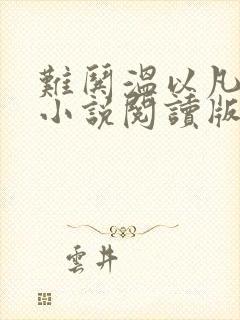 難鬨溫以凡
小說閱讀版
雲井